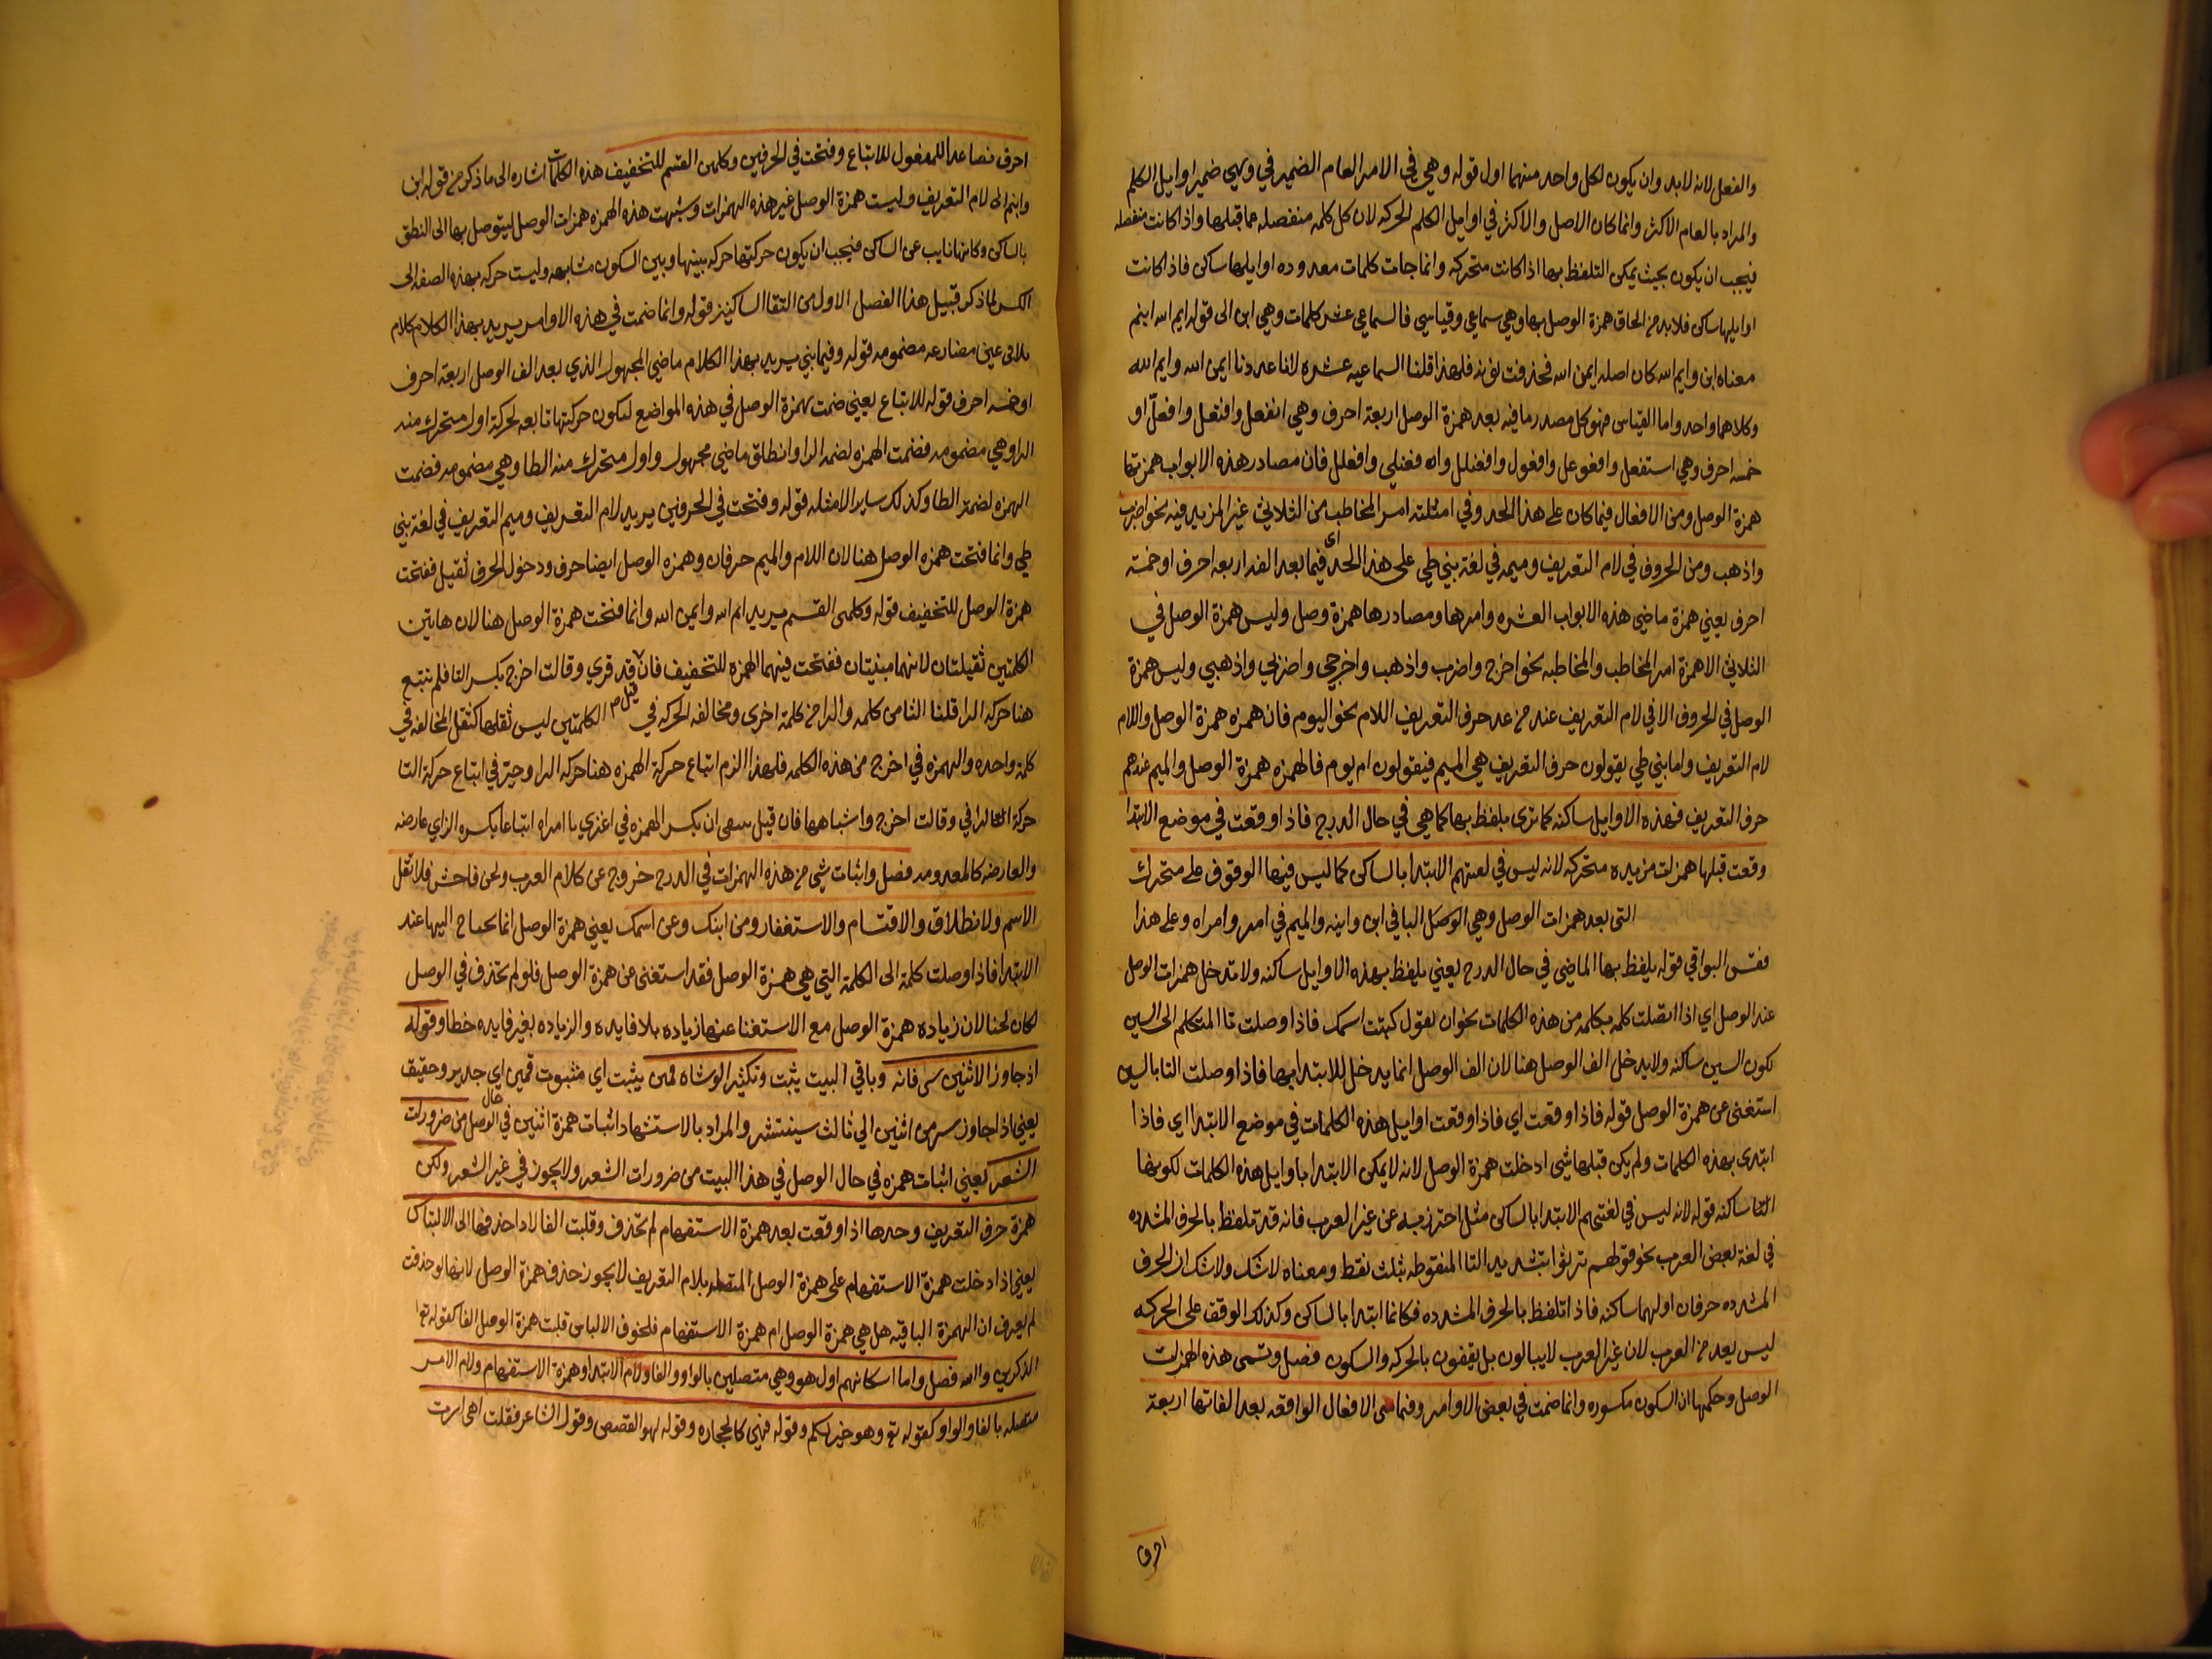 والفعل لانه لابد وان يكون لكل واحد منهما اول قوله وهي في الامر العام الضمير في وهي ضمير اوايل الكلم
والمراد بالعام الاكثر وانما كان الاصل والاكثر في اوايل الكلم الحركه لان كل كلمه منفصله عما قبلها واذا كانت منفصله
فيجب ان يكون بحيث يمكن التلفظ بها اذا كانت متحركه وانما جات كلمات معدوده اوايلها ساكن فاذا كانت
اوايلها ساكن فلابد من الحاق همزة الوصل بها وهي سماعي وقياسي فالسماعي عشر كلمات وهي ابن الى قوله ايم الله ابنم
معناه ابن وايم الله كان اصله ايمن الله فحذفت نونه فلهذا قلنا السماعيه عشره لانا عددنا ايمن الله وايم الله
وكلاهما واحد واما القياس فهو كل مصدر ما فيه بعد همزة الوصل اربعة احرف وهي انفعل وافتعل وافعلّ او
خمسه احرف وهي استفعل وافعوعل وافعول وافعنلل وافعنلى وافعلل فان مصادر هذه الابواب همزتها
همزة الوصل ومن الافعال فيما كان على هذا الحد وفي امثلته امر المخاطب من الثلاثي غير المزيد فيه نحو اضرب
واذهب ومن الحروف في لام التعريف وميمه في لغة بني طي على هذا الحد اي فيما بعد الفه اربعه احرف او خمسة
احرف يعني همزة ماضي هذه الابواب العشره وامرها ومصادرها همزة وصل وليس همزة الوصل في
الثلاثي الا همزة امر المخاطب والمخاطبه نحو اخرج واضرب واذهب واخرجي واضربي واذهبي وليس همزة
الوصل في الحروف الا في لام التعريف عند من عد حرف التعريف اللام نحو اليوم فان همزه همزة الوصل واللام
لام التعريف واما بني طي يقولون حرف التعريف هي الميم فيقولون ام يوم فالهمزه همزة الوصل والميم عندهم
حرف التعريف فهذه الاوايل ساكنه كما ترى يلفظ بها كما هي في حال الدرج فاذا وقعت في موضع الابتدا
وقعت قبلها همزات مزيده متحركه لانه ليس في لغتهم الابتدا بالساكن كما ليس فيها الوقوف على متحرك
التي بعد همزات الوصل وهي الوصل البا في ابن وابنه والميم في امر وامراه وعلى هذا
فقس البواقي قوله يلفظ بها الماضي في حال الدرج يعني يلفظ بهذه الاوايل ساكنه ولا تدخل همزات الوصل
عند الوصل اي اذا اتصلت كلمه بكلمه من هذه الكلمات نحو ان تقول كتبت اسمك فاذا وصلت تا المتكلم الى السين
تكون السين ساكنه ولا يدخل الف الوصل هنا لان الف الوصل انما يدخل للابتدا بها فاذا وصلت التا بالسين
استغنى عن همزة الوصل قوله فاذا وقعت اي فاذا وقعت اوايل هذه الكلمات في موضع الابتدا اي فاذا
ابتدى بهذه الكلمات ولم يكن قبلها شي ادخلت همزة الوصل لانه لا يمكن الابتدا باوايل هذه الكلمات لكونها
ساكنه قوله لانه ليس في لغتهم الابتدا بالساكن مثل احترز به عن غير العرب فانه قد تلفظ بالحرف المشدده
في لغة بعض العرب نحو قولهم تربثوا بتشديد التا المنقوطه بثلث نقط ومعناه لا شك ولا شك ان الحرف
المشدده حرفان اولهما ساكنه فاذا تلفظ بالحرف المشدده فكانما ابتدا بالساكن وكذلك الوقف على الحركه
ليس يعد من العرب لان غير العرب لا يبالون بل يقفون بالحركه والسكون فصل وتسمى هذه الهمزات
الوصل وحكمها ان تكون مكسوره وانما ضمت في بعض الاوامر وفيما بني الافعال الواقعه بعد الفاتها اربعة
احرف
احرف فصاعدا للمفعول للاتباع وفتحت في الحرفين وكلمتي القسم للتخفيف هذه الكلمات اشاره الى ما ذكر من قوله ابن
وابنم الى لام التعريف وليست همزة الوصل غير هذه الهمزات وسميت هذه الهمزه همزات الوصل ليتوصل بها الى النطق
بالساكن وكانها نايب عن الساكن فيجب ان يكون حركتها حركه بينها وبين السكون مشابهه وليست حركه بهذه الصفه الى
الكسر لما ذكر قبيل هذا الفصل الاولى من التقا الساكنين قوله وانما ضمت في هذه الاوامر يريد بهذا الكلام كلام
ثلاثي عين مضارعه مضمومه قوله وفيما بني يريد بهذا الكلام ماضي المجهول الذي بعد الف الوصل اربعة احرف
او خمسه احرف قوله للاتباع يعني ضمت همزة الوصل في هذه المواضع لتكون حركتها تابعه لحركة اول متحرك منه
الرا وهي مضمومه فضمت الهمزه لضمه الرا وانطلق ماضي مجهول واول متحرك منه الطا وهي مضمومه فضمت
الهمزه لضمة الطا وكذلك ساير الامثله قوله وفتحت في الحرفين يريد لام التعريف وميم التعريف في لغة بني
طي وانما فتحت همزه الوصل هنا لان اللام والميم حرفان وهمزه الوصل ايضا حرف ودخول الحرف ثقيل ففتحت
همزة الوصل للتخفيف قوله وكلمتي القسم يريد ايم الله وايمن الله وانما فتحت همزة الوصل هنا لان هاتين
الكلمتين ثقيلتان لانهما مبنيتان ففتحت فيهما الهمزه للتخفيف فان قيل قد قري وقالت اخرج بكسر التا فلم تتبع
هنا حركه الرا قلنا التا من كلمه والرا من كلمة اخرى ومخالفه الحركه في الكلمتين ليس ثقلها كثقل المخالفه في
كلمة واحده والهمزه في اخرج من هذه الكلمه فلهذا الزم اتباع حركة الهمزه هنا حركه الرا وخير في اتباع حركة التا
حركة الرا في وقالت اخرج واشباهها فان قيل ينبغي ان يكسر الهمزه في اغزي يا امراه اتباعا بكسره الزاي عارضه
والعارضه كالمعدومه فصل واثبات شي من هذه الهمزات في الدرج خروج عن كلام العرب ولحن فاحش فلا تقل
الاسم ولانطلاق والاقتسام والاستغفار ومن ابنك وعن اسمك يعني همزة الوصل انما يحتاج اليها عند
الابتدا فاذا وصلت كلمة الى الكلمة التي هي همزة الوصل فقد استغنى عن همزة الوصل فلو لم تحذف في الوصل
لكان لحنا لان زياده همزة الوصل مع الاستغنا عنها زياده بلا فايده والزياده بغير فايده خطا وقوله
اذ جاوز الاثنين سر فانه وباقي البيت يثبت وتكثير الوشاه قمين يثبت اي مثبوت قمين اي جدير وحقيق
يعني اذا جاوز سر من اثنين الي ثالث سينتشر والمراد بالاستشهاد اثبات همزة اثنين في حال الوصل من ضرورات
الشعر يعني اثبات همزه في حال الوصل في هذا البيت من ضرورات الشعر ولا يجوز في غير الشعر ولكن
همزة حرف التعريف وحدها اذا وقعت بعد همزة الاستفهام لم تحذف وقلبت الفا لادا حذفها الى الالتباس
يعني اذا دخلت همزة الاستفهام على همزة الوصل المتصله بلام التعريف لا يجوز حذف همزة الوصل لانها لو حذفت
لم يعرف ان الهمزة الباقيه هل هي همزة الوصل ام همزة الاستفهام فلخوف الالباس قلبت همزة الوصل الفا كقوله تع
الذكرين والله فصل واما اسكانهم اول هو وهي متصلين بالواو والفا ولام الابتدا وهمزة الاستفهام ولام الامر
متصله بالفا والواو كقوله تع وهو خير لكم وقوله فهي كالحجاره وقوله لهو القصص وقول الشاعر فقلت اهي سرت